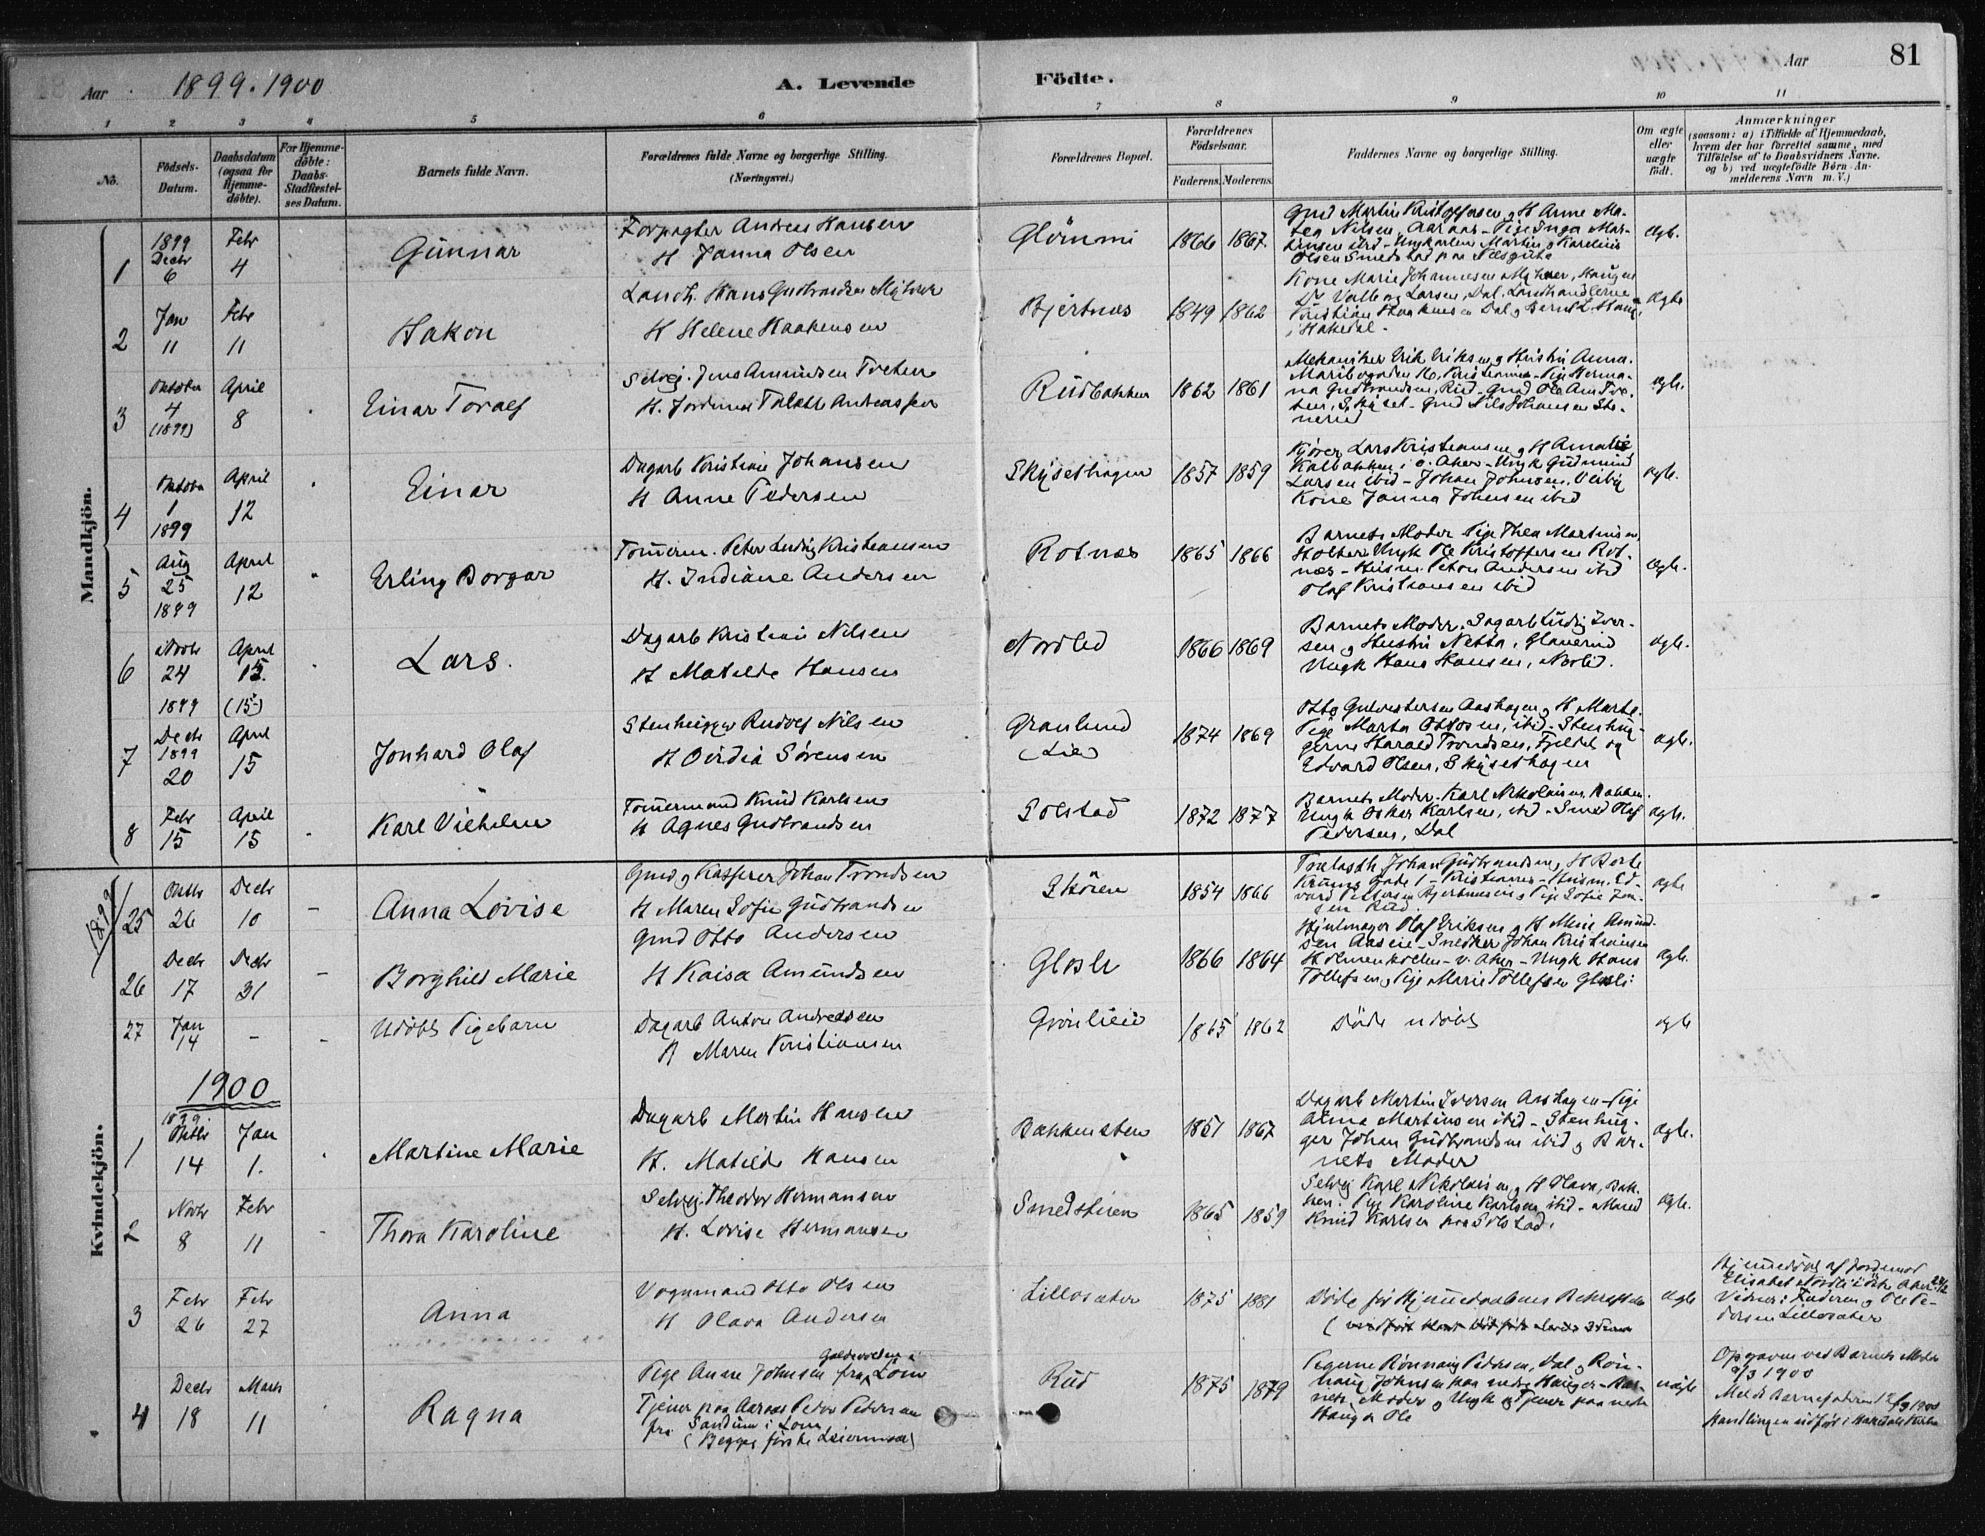 Aar 1899.1900 A. Levende Födte. Aar 81
1 2 3 4 5 6 7 8 9 10 11
No. Födsels-Datum. Daabsdatum (ogsaa for Hjemme-døbte). For Hjemme-døbte: Daabs-Stadfæstel-ses Datum. Barnets fulde Navn. Forældrenes fulde Navne og borgerlige Stilling. (Næringsvei.) Forældrenes Bopæl. Forældrenes Födselsaar. Faderens. Moderens. Faddernes Navne og borgerlige Stilling. Om ægte eller uægte födt. Anmærkninger (saasom: a) i Tilfælde af Hjemmedaab, hvem der har forrettet samme, med Tilföielse af to Daabsvidners Navne. og b) ved uægtefödte Börn Anmelderens Navn m. V.)
Mandkjön.
1 1899 Decbr 6 Febr 4 Gunnar Forpagter Andreas Hansen
H Janna Olsen Glømmi 1866 1867 Gmd Martin Kristoffersen og H Anne Ma-
tea Nilsen, Aaraas - Pige Inga Mar-
tinsen ibid - Ungkarlene Martin og Karelius
Olsen Smedstad paa Næsgute ægte.
2 Jan 11 Febr 11 Hakon Landh. Hans Gudbrandsen Myhrer
H Helene Haakensen Bjertnæs 1849 1862 Kone Marie Johannesen Myhrer, Haugen
Valborg Larsen, Dal, Landhandlerne
Kristian Haakensen Dal og Bernt L. Haug,
i Hakedal. ægte
3 Oktober 4 (1899) April 8 Einar Toralf Selvej. Jens Amundsen Tveten
Rudbakken 1862 1861 Mekaniker Erik Eriksen og Hustru Anna.
Pige Herma-
na Gudbrandsen, Rud - Gmd Ole Am Tve-
ten, Skyset - Gmd Nils Johansen Ste-
nerud ægte.
4 Oktober 1 1899 April 12 Einar Dagarb Kristian Johansen
H Anne Pedersen Skysethagen 1857 1859 Kjører Lars Kristiansen og H Amalie
Kalbakken i ø. Aker - Ungk Gudmund
Larsen ibid - Johan Johnsen, Verby
Kone Janna Johnsen ibid ægte.
5 Aug 25 1899 April 12 Erling Borgar Tømerm. Peter Ludvig Kristiansen
H. Indiane Andersen Rotnæs 1865 1866 Barnets Moder Pige Thea Martinsen
Holter, Ungk Ole Kristoffersen Rot-
næs - Husm. Peter Andersen ibid
Olaf Kristiansen ibid ægte.
6 Novbr 24 1899 April 15. (15) Lars. Dagarb Kristian Nilsen
H Matilde Hansen Nordlid 1866 1869 Barnets Moder. Dagarb Ludvig Iver-
sen og Hustru Netta, Glanerud
Ungk Hans Hansen, Nordlid. ægte.
7 Decbr 1899 20 April 15 Jonhard Olaf Stenhugger Rudolf Nilsen
H Ovidia Sørensen Granlund
(Lie) 1874 1869 Otto Gulvestersen Aashagen og H Marte.
Pige Marta Ottosen, ibid - Stenhug-
gerne Harald Trondsen, Fjeldet og
Edvard Olsen, Skysethagen ægte.
8 Febr 15 April 15 Karl Vilhelm Tømermand Knud Karlsen
H Agnes Gudbrandsen Solstad 1872 1877 Barnets Moder - Karl Nikolaisen, Bakken.
Ungk Oskar Karlsen, ibid - Smed Olaf
Pedersen, Dal ægte.
Kvindekjön.
1899
25 Oktbr 26 Decbr 10 Anna Lovise Gmd og Kasserer Johan Trondsen
H Maren Sofie Gudbrandsen Skøien 1854 1866 Trælasth. Johan Gudbrandsen, H Berte
Krums Gade 1 - Kristiania - Husm. Ed-
vard Pettersen Bjertnæs og Pige Sofie Jen-
sen Rud. ægte
26 Decbr 17 Decbr 31 Borghild Marie Gmd Otto Andersen
H Kaisa Amundsen Glosli 1866 1864 Hjulmager Olaf Eriksen og H Mina Amund-
sen Aaseie - Snedker Johan Kristiansen
Holmenkollen - v. Aker - Ungk Hans
Tollefsen og Pige Marie Tollefsen Glosli ægte.
27 Jan 14 - Udøbt Pigebarn Dagarb Anton Andresen
H Maren Kristiansen Grønlieie 1865 1862 Døde udøbt ægte
1900
1 1899. Oktbr 14 Jan 1. Martine Marie Dagarb Martin Hansen
H. Matilde Hansen Bakkensten 1851 1867 Dagarb Martin Iversen Aashagen - Pige
Anna Martinsen ibid - Stenhug-
ger Johan Gudbrandsen ibid og Bar-
nets Moder ægte.
2 Novbr 8 Febr 11 Thora Karoline Selvej. Theodor Hermansen
H. Lovise Hermansen Smedstuen 1865 1859 Selvej Karl Nikolaisen og H Olava, Bak-
ken. Pige Karoline Karlsen ibid - Maud
Knud Karlsen paa Solstad. ægte.
3 Febr 26 Febr 27 Anna Vognmand Otto Olsen
H Olava Andersen Lillosæter 1875 1881 Døde før Hjemmedaabens Bekræftelse ægte Hjemmedøbt af Jordemor
Elisabet Nordli
Vidner: Faderen og Ole Pe-
dersen Lillosæter
4 Decbr 18 Marts 11 Ragna Pige Anne Johnsen Galdevolden fra Lom
Tjener paa Aaraas Peder Pedersen
fra Sandum i Lom
(Begges første Leiermaal) Rud 1875 1879 Pigerne Rønnaug Pedersen, Dal og Røn-
naug Johnsen paa nedre Hauger - Bar-
nets Moder og Ungk og Tjener paa nedre
Haug Ole uægte Opgaven ved Barnets Moder
9/3 1900
Meldt Barnefaderen 12/3 1900
Handlingen udført i Hakedals Kirke